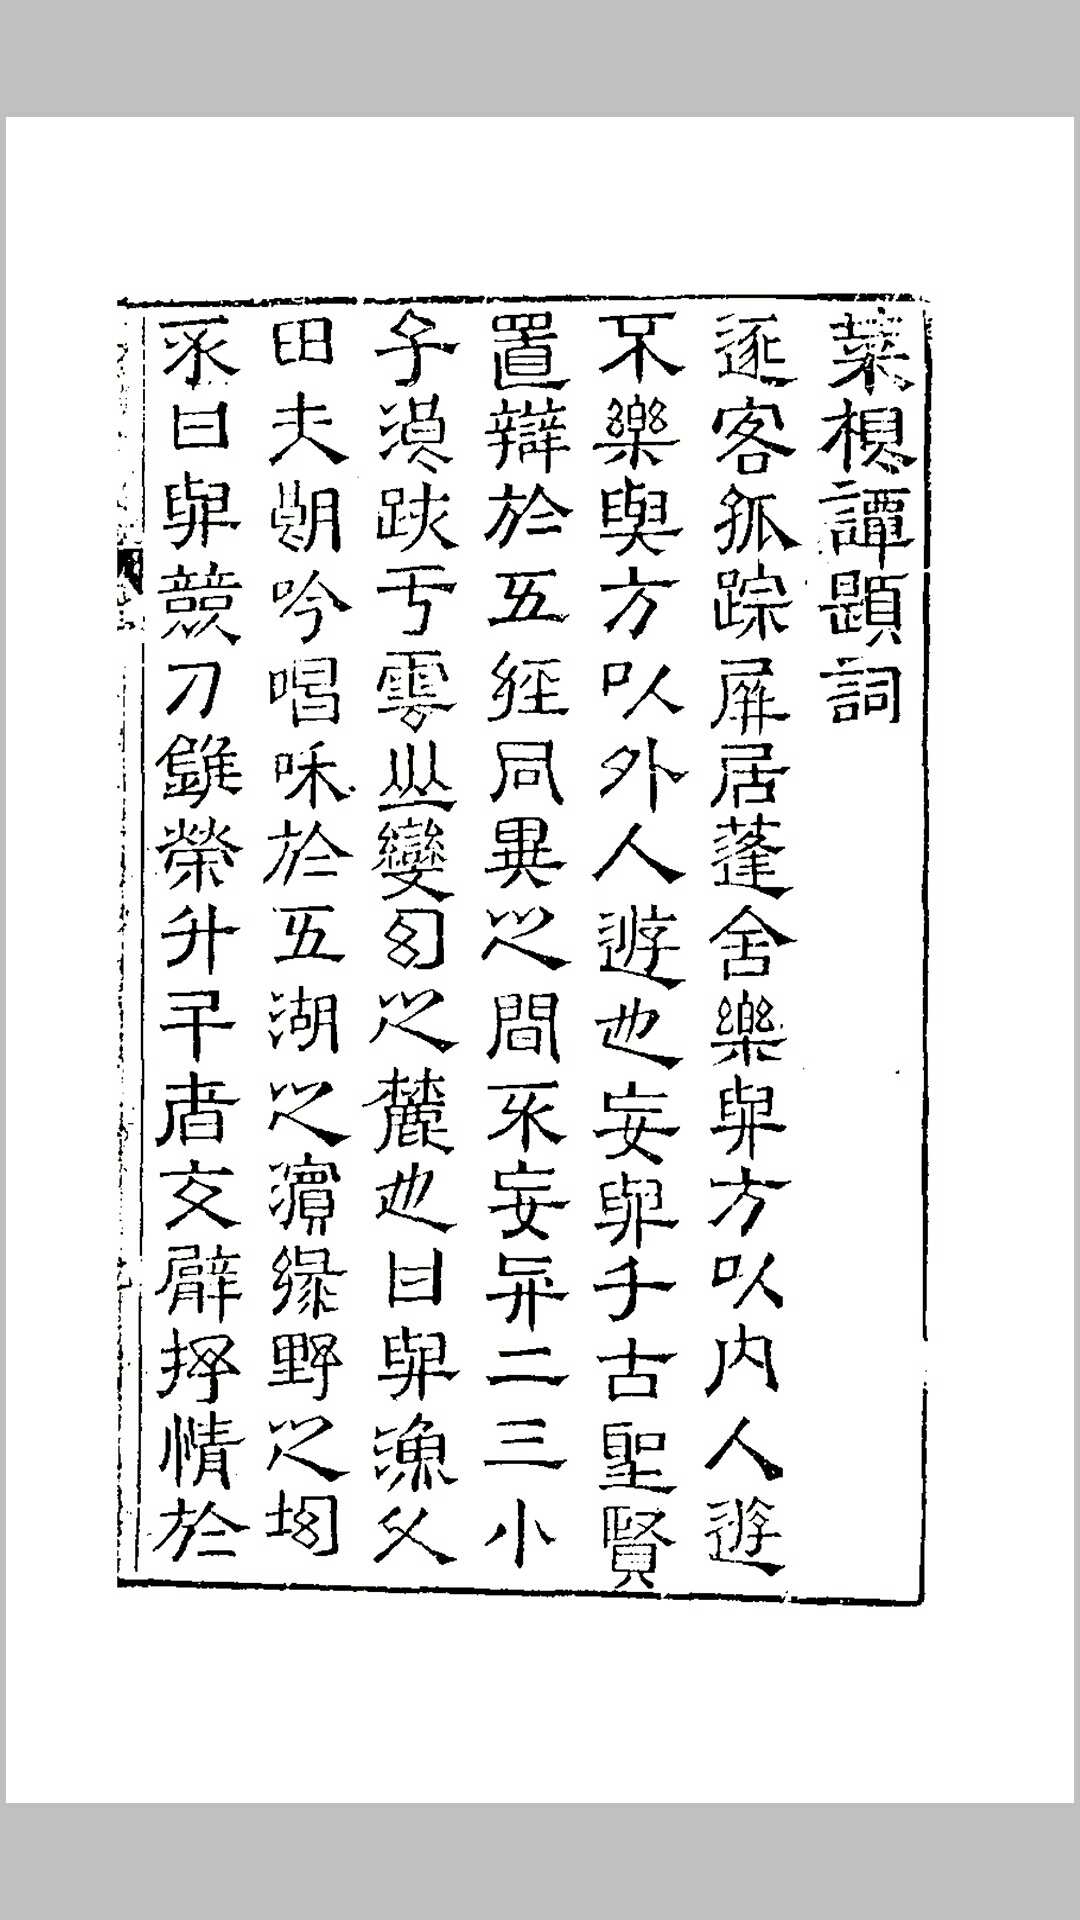 菜根譚題詞
逐客孤踪屏居蓬舍樂與方以內人遊
不樂與方以外人遊也妄與千古聖賢
置辯於五經同異之間不妄與二三小
子浪跡于雲山變幻之麓也日與漁父
田夫朗吟唱和於五湖之濱綠野之坳
不日與競刀錐榮升斗者交臂抒情於